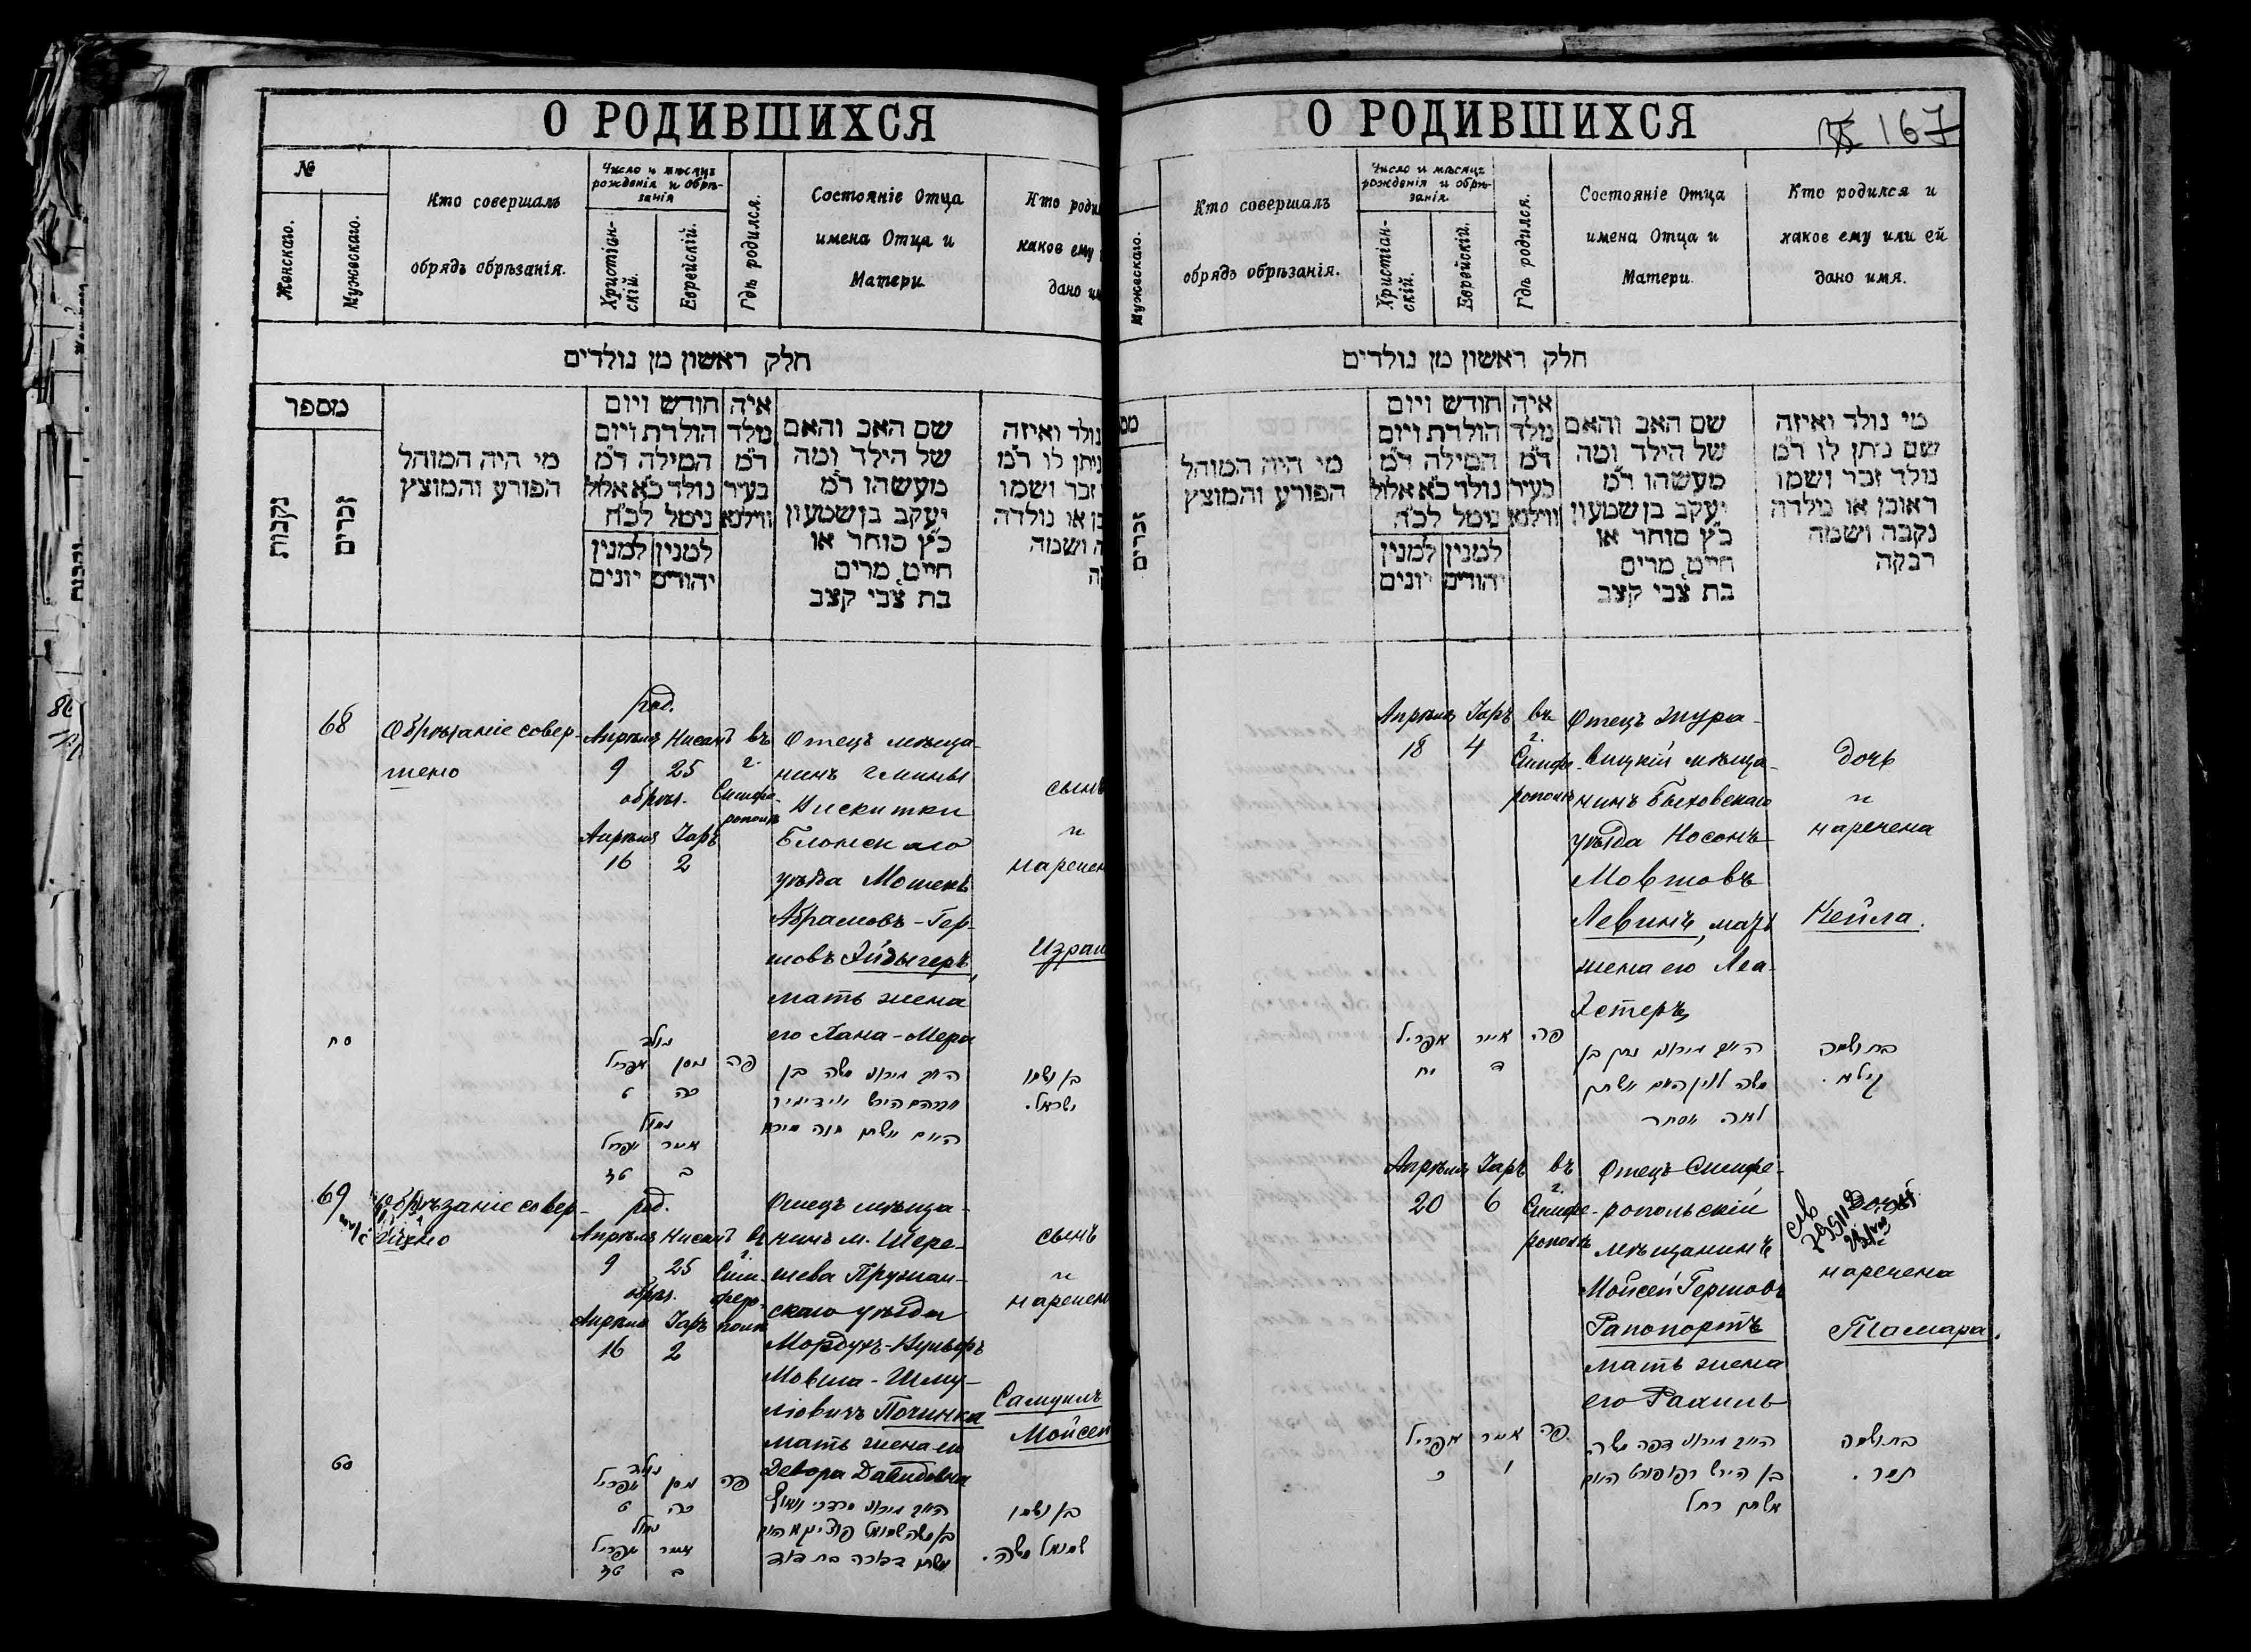 О РОДИВШИХСЯ
№
Женскаго.
Мужескаго.
Кто совершалъ
обрядъ обрѣзанія.
Число и мѣсяцъ
рожденія и обрѣ-
занія
Христіан-
скій.
Еврейскій.
Гдѣ родился.
Состояніе Отца
имена Отца и
Матери.
Кто роди
какое ему
дано им
חלק ראשון מן נולדים
מספר
נקבות
זכרים
מי היה המוהל
הפורע והמוצץ
חודש ויום
הולדת ויום
המילה ד״מ
נולד כ״א אלול
נימל לכ״ח
למנין למנין
יהודים יונים
איה
נולד
ד״מ
בעיר
ווילנא
שם האב והאם
של הילד ומה
מעשהו ד״מ
יעקב בן שמעון
כ״ץ סוחר או
חייט, מרים
בת צבי קצב
נולד ואיזה
ניתן לו ד״מ
זכר ושמו
בן או נולדה
ה ושמה
קה
68
Обрѣзаніе совер-
шено
род.
Апрѣля Нисанъ
9 25
обрѣз.
Апрѣля Іаръ
16 2
въ
г.
Симфе-
рополѣ
Отецъ мѣща-
нинъ гмины
Кискитки
Блонскаго
уѣзда Мошекъ
Абрамовъ-Гер-
шовъ Айдыгеръ,
мать жена
его Хана-Мера
сынъ
и
наречен
Израи
סח
נולד
ניסן אפריל
כה ט
נמול
אייר אפריל
ב טז
פה
משה בן
בן ושמו
ישראל.
69
Обрѣзаніе совер-
шено
род.
Апрѣля Нисанъ
9 25
обрѣз.
Апрѣля Іаръ
16 2
въ
г.
Сим-
феро-
полѣ
Отецъ мѣща-
нинъ м. Шере-
шева Пружан-
скаго уѣзда
Мордухъ-
Мовша-Шму-
ліовичъ Починка
мать жена его
Девора Давидовна
сынъ
и
наречен
Самуилъ
Мойсей
סט
נולד
ניסן אפריל
כה ט
נמול
אייר אפריל
ב טז
פה
אשתו דבורה בת דוד
בן ושמו
שמואל משה.
О РОДИВШИХСЯ
167
Мужескаго.
Кто совершалъ
обрядъ обрѣзанія.
Число и мѣсяцъ
рожденія и обрѣ-
занія
Христіан-
скій.
Еврейскій.
Гдѣ родился.
Состояніе Отца
имена Отца и
Матери.
Кто родился и
какое ему или ей
дано имя.
חלק ראשון מן נולדים
מס
זכרים
מי היה המוהל
הפורע והמוצץ
חודש ויום
הולדת ויום
המילה ד״מ
נולד כ״א אלול
נימל לכ״ח
למנין למנין
יהודים יונים
איה
נולד
ד״מ
בעיר
ווילנא
שם האב והאם
של הילד ומה
מעשהו ד״מ
יעקב בן שמעון
כ״ץ סוחר או
חייט, מרים
בת צבי קצב
מי נולד ואיזה
שם ניתן לו ד״מ
נולד זכר ושמו
ראובן או נולדה
נקבה ושמה
רבקה
Апрѣля Іаръ
18 4
въ
г.
Симфе-
рополѣ
Отецъ Жура-
вицкій мѣща-
нинъ Быховскаго
уѣзда Носонъ
Мовшовъ
Левинъ, мать
жена его Леа-
Эстеръ
дочь
и
наречена
Кейла.
אייר אפריל
ד יח
פה
נתן בן
משה לוין
לאה אסתר
בת ושמה
קילא.
Апрѣля Іаръ
20 6
въ
г.
Симфе-
рополѣ
Отецъ Симфе-
ропольскій
мѣщанинъ
Мойсей Гершовъ
Рапопортъ
мать жена
его Рахиль
дочь
наречена
Тамара.
אייר אפריל
ו כ
פה
משה
בן הירש רפופורט
אשתו רחל
בת ושמה
תמר.